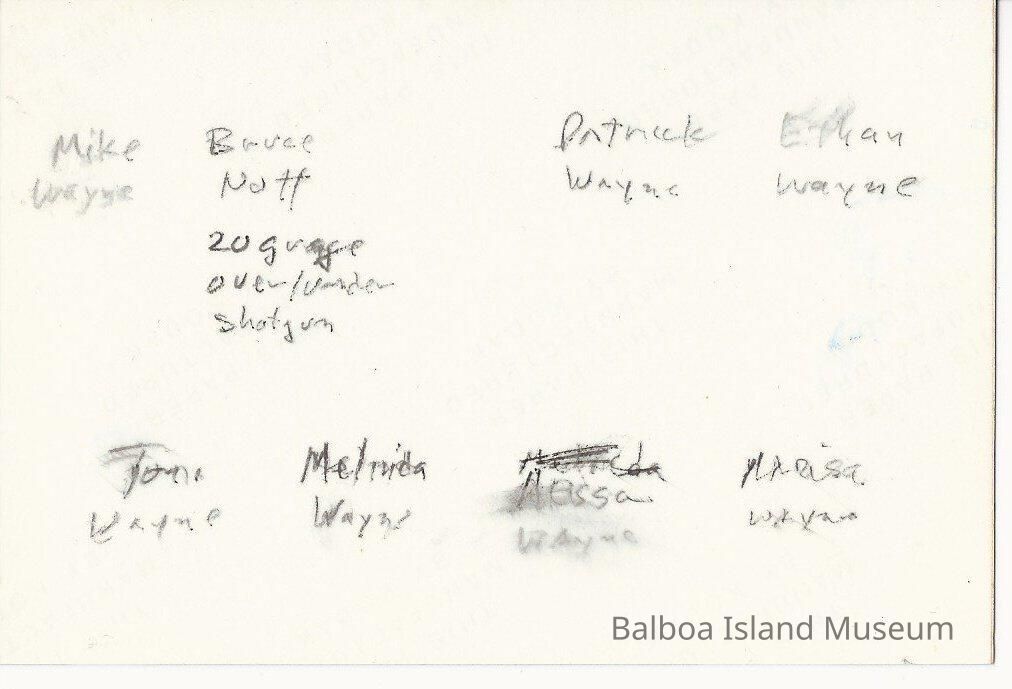 Mike
Wayne
Bruce
Nott
20 guage
over/under
shotgun
Patrick
Wayne
Ethan
Wayne
Toni
Wayne
Melinda
Wayne
Aissa
Wayne
Marisa
Wayne
Balboa Island Museum